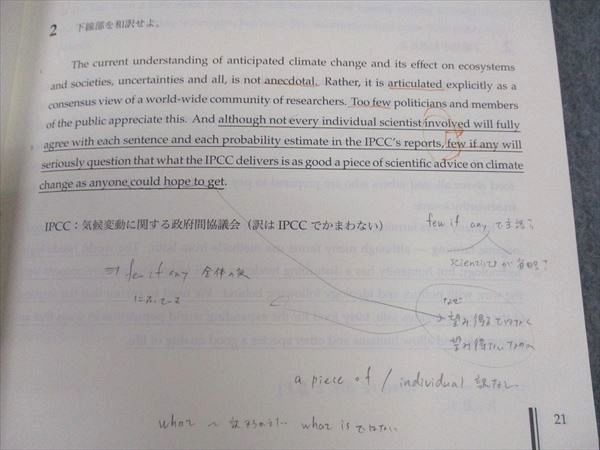 2 下線部を和訳せよ。
The current understanding of anticipated climate change and its effect on ecosystems
and societies, uncertainties and all, is not anecdotal. Rather, it is articulated explicitly as a
consensus view of a world-wide community of researchers. Too few politicians and members
of the public appreciate this. And although not every individual scientist involved will fully
agree with each sentence and each probability estimate in the IPCC's reports, few if any will
seriously question that what the IPCC delivers is as good a piece of scientific advice on climate
change as anyone could hope to get.
IPCC：気候変動に関する政府間協議会（訳は IPCC でかまわない）
few if any で主語？
scientists が省略？
⇒ few if any 全体の
なぜ
望み得るではなく
望み得ない
a piece of / individual 訳なし
what ～ what is ではない
21